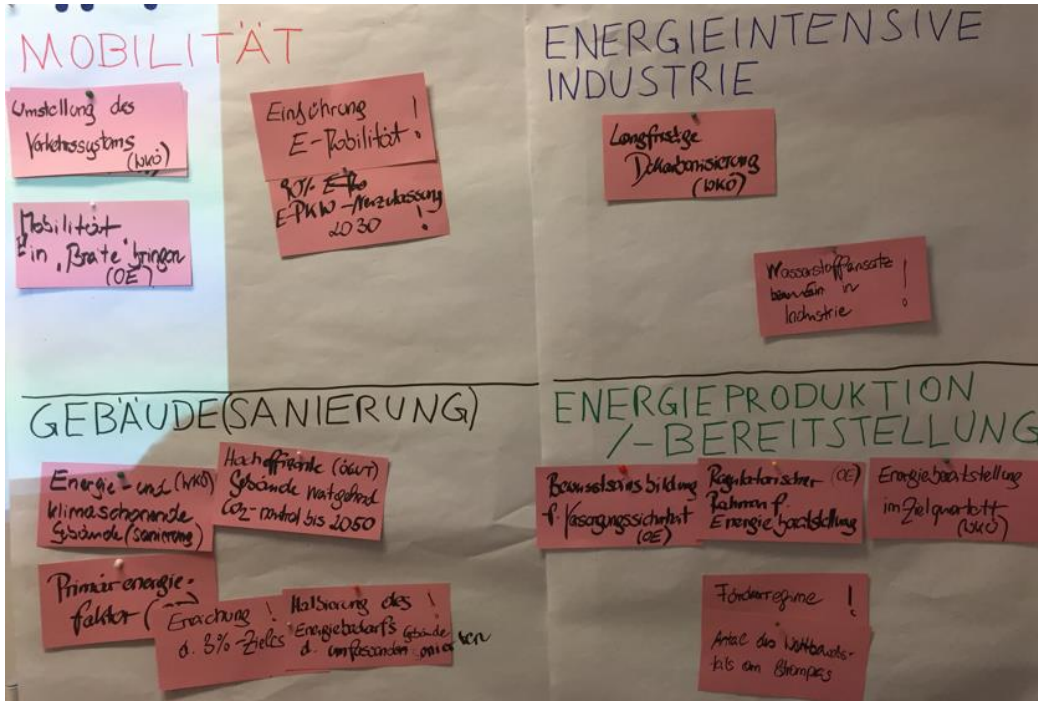 MOBILITÄT
Umstellung des
Verkehrssystems
(WKÖ)
Mobilität
in "Breite" bringen
(OE)
Einführung !
E-Mobilität
90%
E-PKW-Neuzulassung
2030 !
ENERGIEINTENSIVE
INDUSTRIE
Langfristige
Dekarbonisierung
(WKO)
Wasserstoffansatz !
in
Industrie
GEBÄUDE(SANIERUNG)
Energie- und (WKÖ)
klimaschonende
Gebäude (sanierung)
Hocheffiziente (ÖGUT)
Gebäude weitgehend
CO2-neutral bis 2050
Primärenergie-
faktor
Erreichung !
d. 3%-Zieles
Halbierung des !
Energiebedarfs Gebäude
d. umfassenden
ENERGIEPRODUKTION
/-BEREITSTELLUNG
Bewusstseinsbildung
f. Versorgungssicherheit
(OE)
Regulatorischer (OE)
Rahmen f.
Energiebereitstellung
Energiebereitstellung
im Zielquartett
(WKO)
Förderregime !
Anteil des Wettbewerbs-
teils am Strompreis